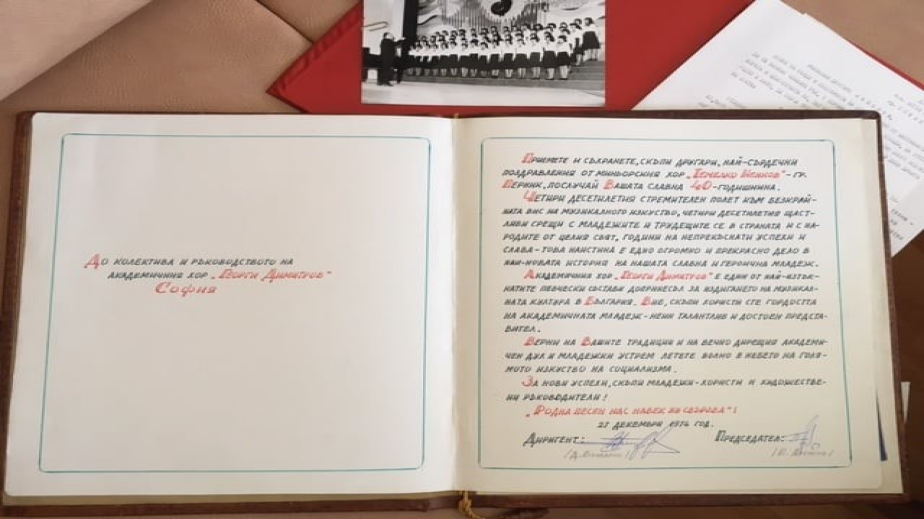 До колектива и ръководството на
академичния хор „Георги Димитров“
София
Приемете и съхранете, скъпи другари, най-сърдечни
поздравления от миньорския хор „Темелко Ненков“ - гр.
Перник, послучай Вашата славна 40-годишнина.
Четири десетилетия стремителен полет към безкрай-
ната вис на музикалното изкуство, четири десетилетия щаст-
ливи срещи с младежите и трудещите се в страната и с на-
родите от целия свят, години на непрекъснати успехи и
слава - това наистина е едно огромно и прекрасно дело в
най-новата история на нашата славна и героична младеж.
Академичния хор „Георги Димитров“ е един от най-изтък-
натите певчески състави допринесъл за издигането на музикал-
ната култура в България. Вие, скъпи хористи сте гордостта
на академичната младеж - неин талантлив и достоен предста-
вител.
Верни на Вашите традиции и на вечно дирещия академи-
чен дух и младежки устрем летете волно в небето на голя-
мото изкуство на социализма.
За нови успехи, скъпи младежи-хористи и художестве-
ни ръководители!
„Родна песен нас навек ни сворзва“!
27 декември 1974 год.
Диригент: Председател: